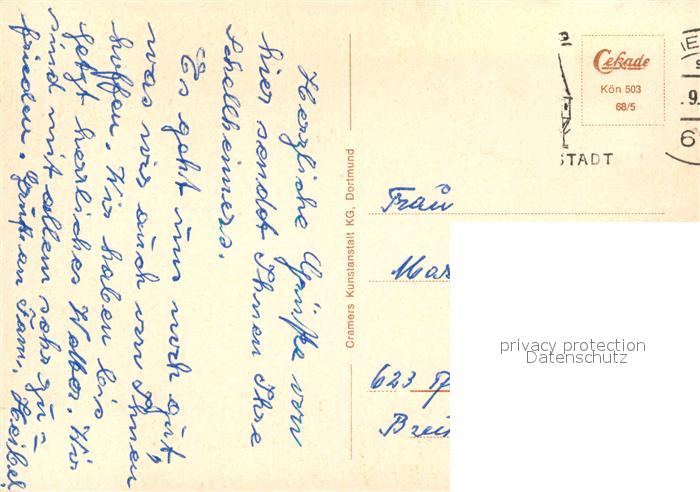 Herzliche Grüße von
hier sendet Ihnen Ihre
Schellheimers.
Es geht uns noch gut,
was wir auch von Ihnen
hoffen. Wir haben bis
jetzt herrliches Wetter. Wir
sind mit allem sehr zu=
frieden. Gruß an Fam. Heibel
Cramers Kunstanstalt KG, Dortmund
Cekade
Kön 503
68/5
STADT
Frau
Mar
623
privacy protection
Datenschutz